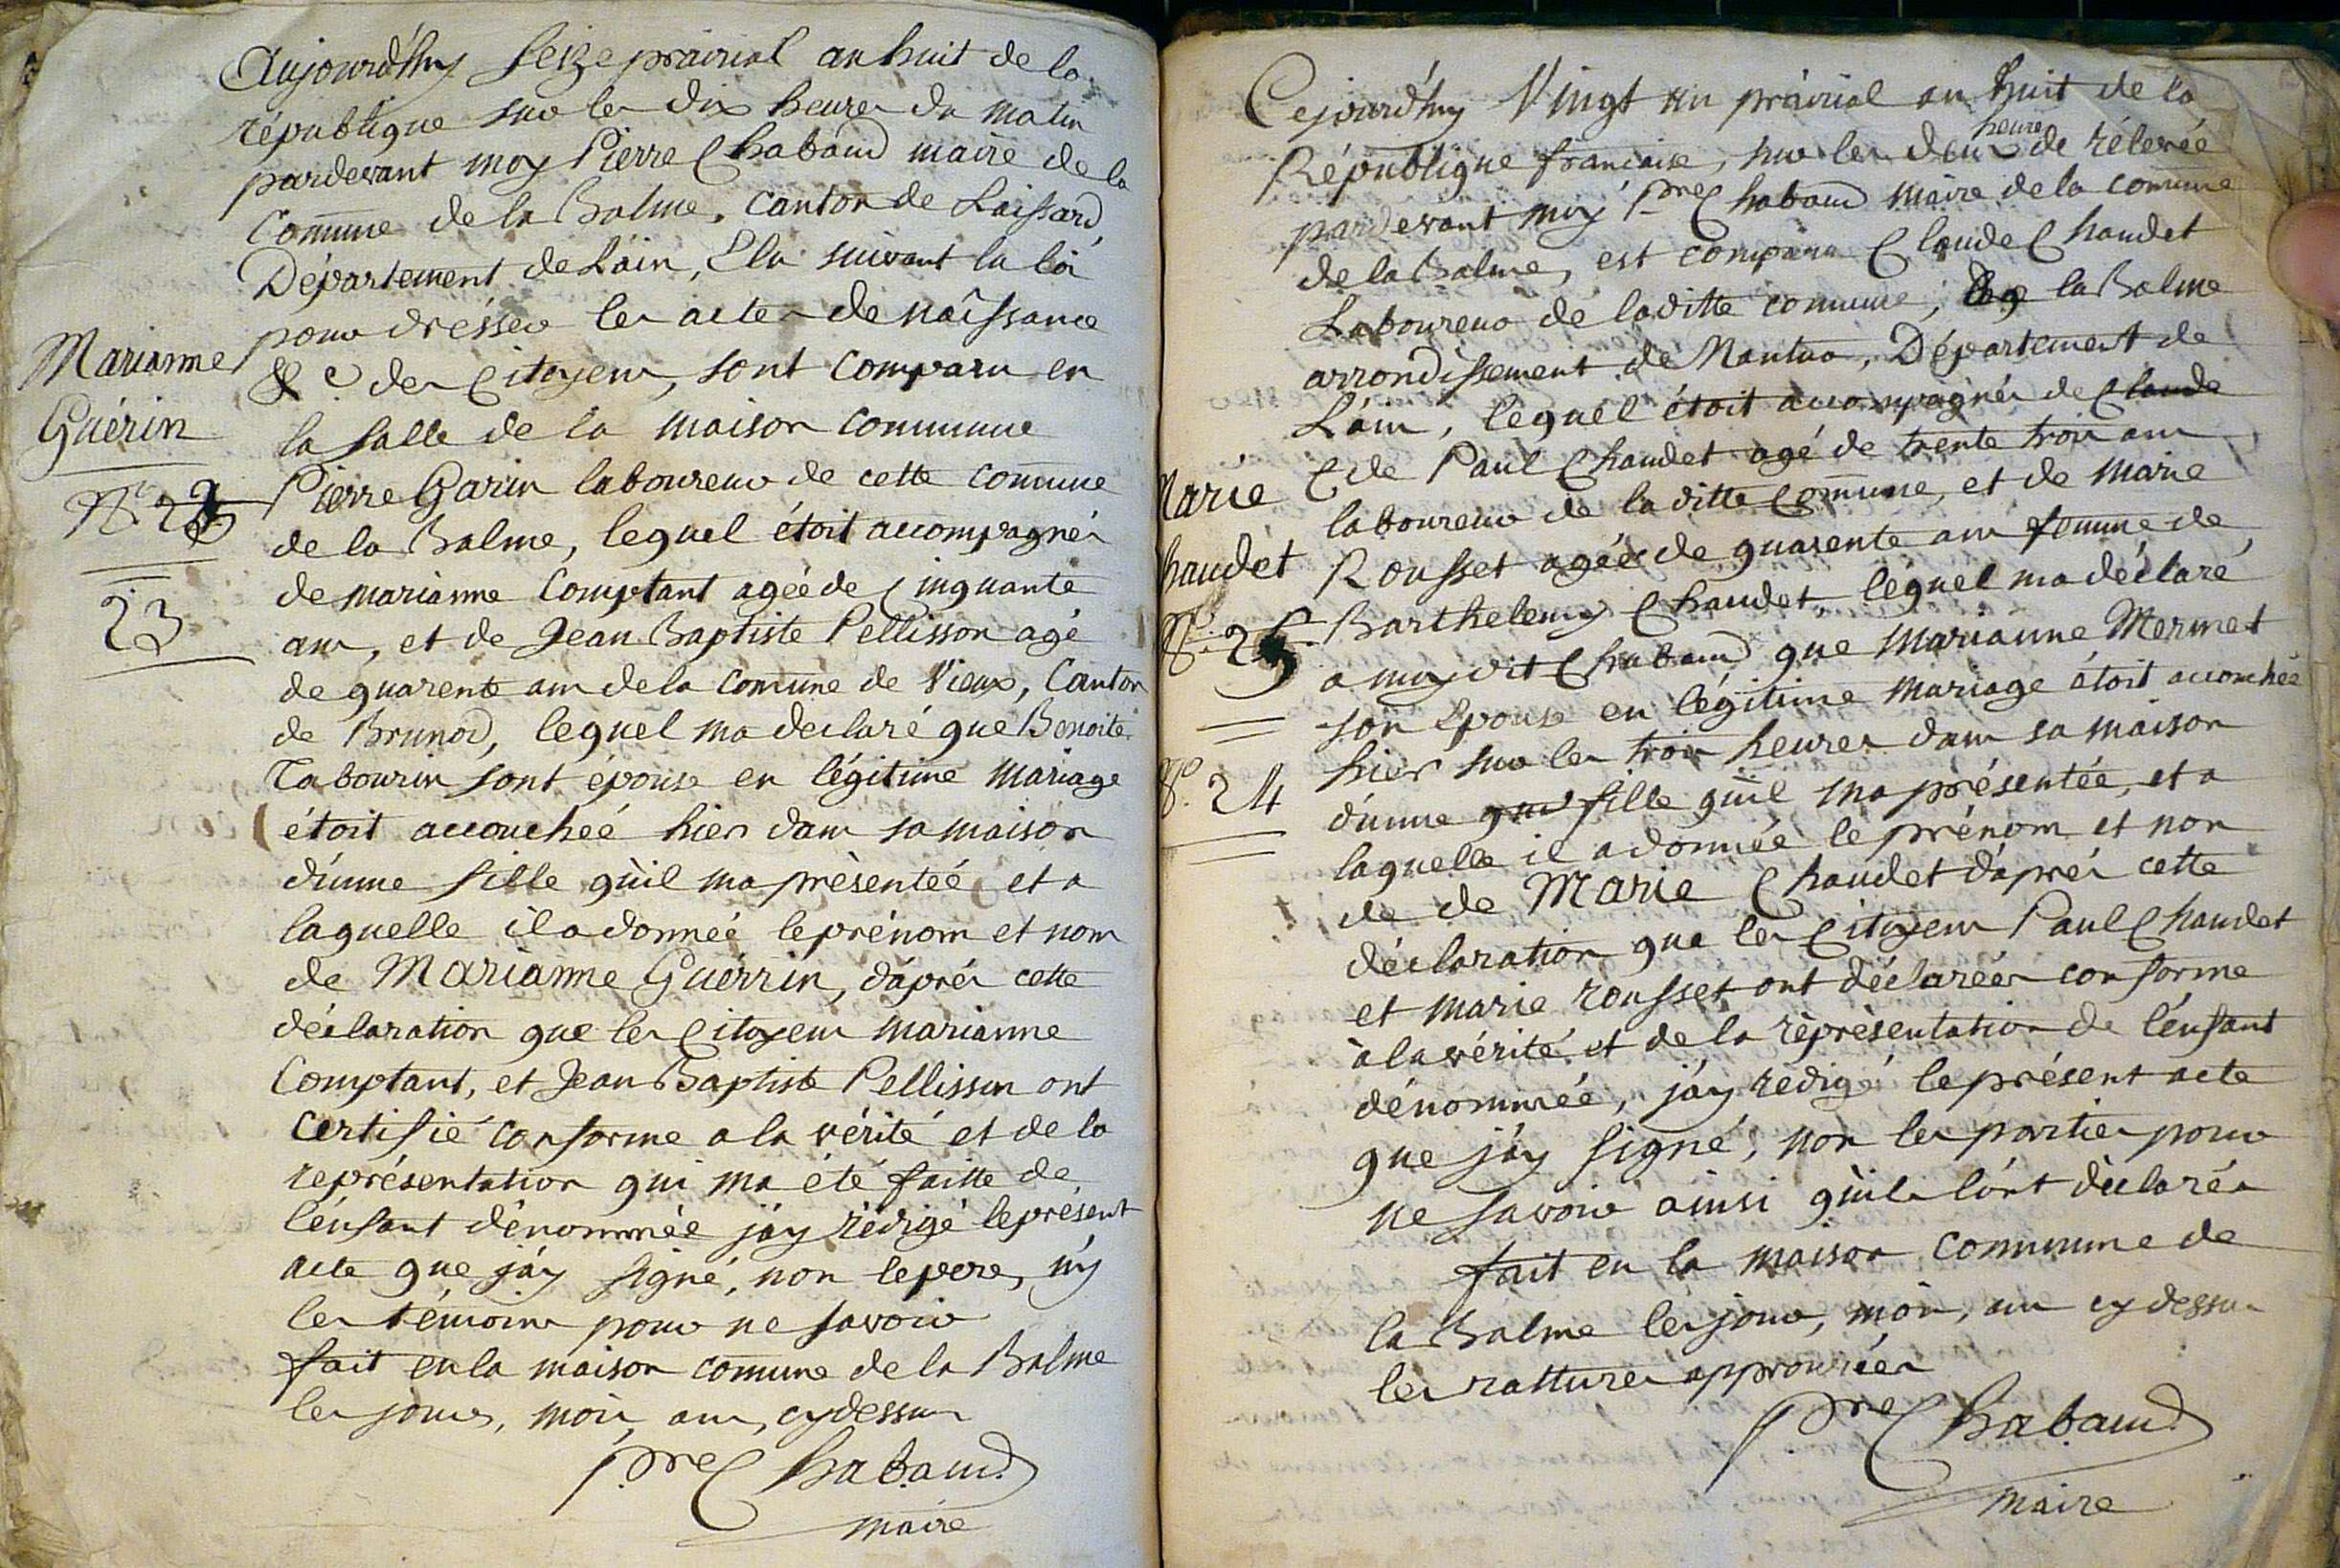 Aujourd'huy seize prairial an huit de la
république sur les dix heures du matin
pardevant moy Pierre Chabaud maire de la
Comune de la Balme, canton de Laissard,
Département de L'ain, Elu suivant la loi
pour drésser les actes de naîssance
& c des Citoyens, sont comparu en
la salle de la maison commune
Pierre Garin laboureur de cette comune
de la Balme, lequel étoit accompagnés
de marianne Comptant ageé de cinquante
ans, et de Jean Baptiste Pellisson agé
de quarente ans de la comune de Vieux, Canton
de Brunod, lequel ma declaré que Benoite
Tabourin sont épouse en légitime mariage
étoit accoucheé hier dans sa maison
d'unne fille qu'il ma présenteé et a
laquelle il a donneé le prénom et nom
de Marianne Guérrin, d'aprés cette
déclaration que les Citoyens marianne
Comptant, et Jean Baptiste Pellisson ont
certifié conforme a la vérité et de la
représentation qui ma été faitte de
l'énfant dénommée j'ay rédigé le présent
acte que j'ay signé, non le pere, ny
les témoins pour ne savoir
fait en la maison comune de la Balme
les jours, mois, ans, cydessus
Pre Chabaud
maire
Marianne
Guérin
No. 22
23
Cejourd'huy Vingt un prairial an huit de la
République francaise, sur les deux heures de rélevée
pardevant moy Pre Chabaud maire de la comune
de la Balme, est comparu Claude Chaudet
Laboureur de laditte comune, la Balme
arrondissement de Nantua, Département de
L'ain, lequel étoit accompagnés de Claude
& de Paul Chaudet agé de trente trois ans
laboureur de laditte Comune, et de marie
Rousset ageé de quarente ans femme de
Barthelemy Chaudet, léquel ma déclaré
a moy dit Chabaud que Marianne Mermet
son Epouse en légitime mariage étoit accouchée
hier sur les trois heures dans sa maison
d'unne que fille qu'il ma présentée, et a
laquelle il a donnée le prénom et non
de de Marie Chaudet d'aprés cette
déclaration que les Citoyens Paul Chaudet
et marie rousset ont déclarées conforme
à la vérité et de la représentation de l'énfant
dénommée, j'ay rédigé le présent acte
que j'ay signé, non les parties pour
ne savoir ainsi qu'ils l'ont déclarés
fait en la maison commune de
la Balme les jour, mois, ans cy dessus
les ratturés approuvées
Pre Chabaud
maire
Marie
haudet
No. 25
No. 24